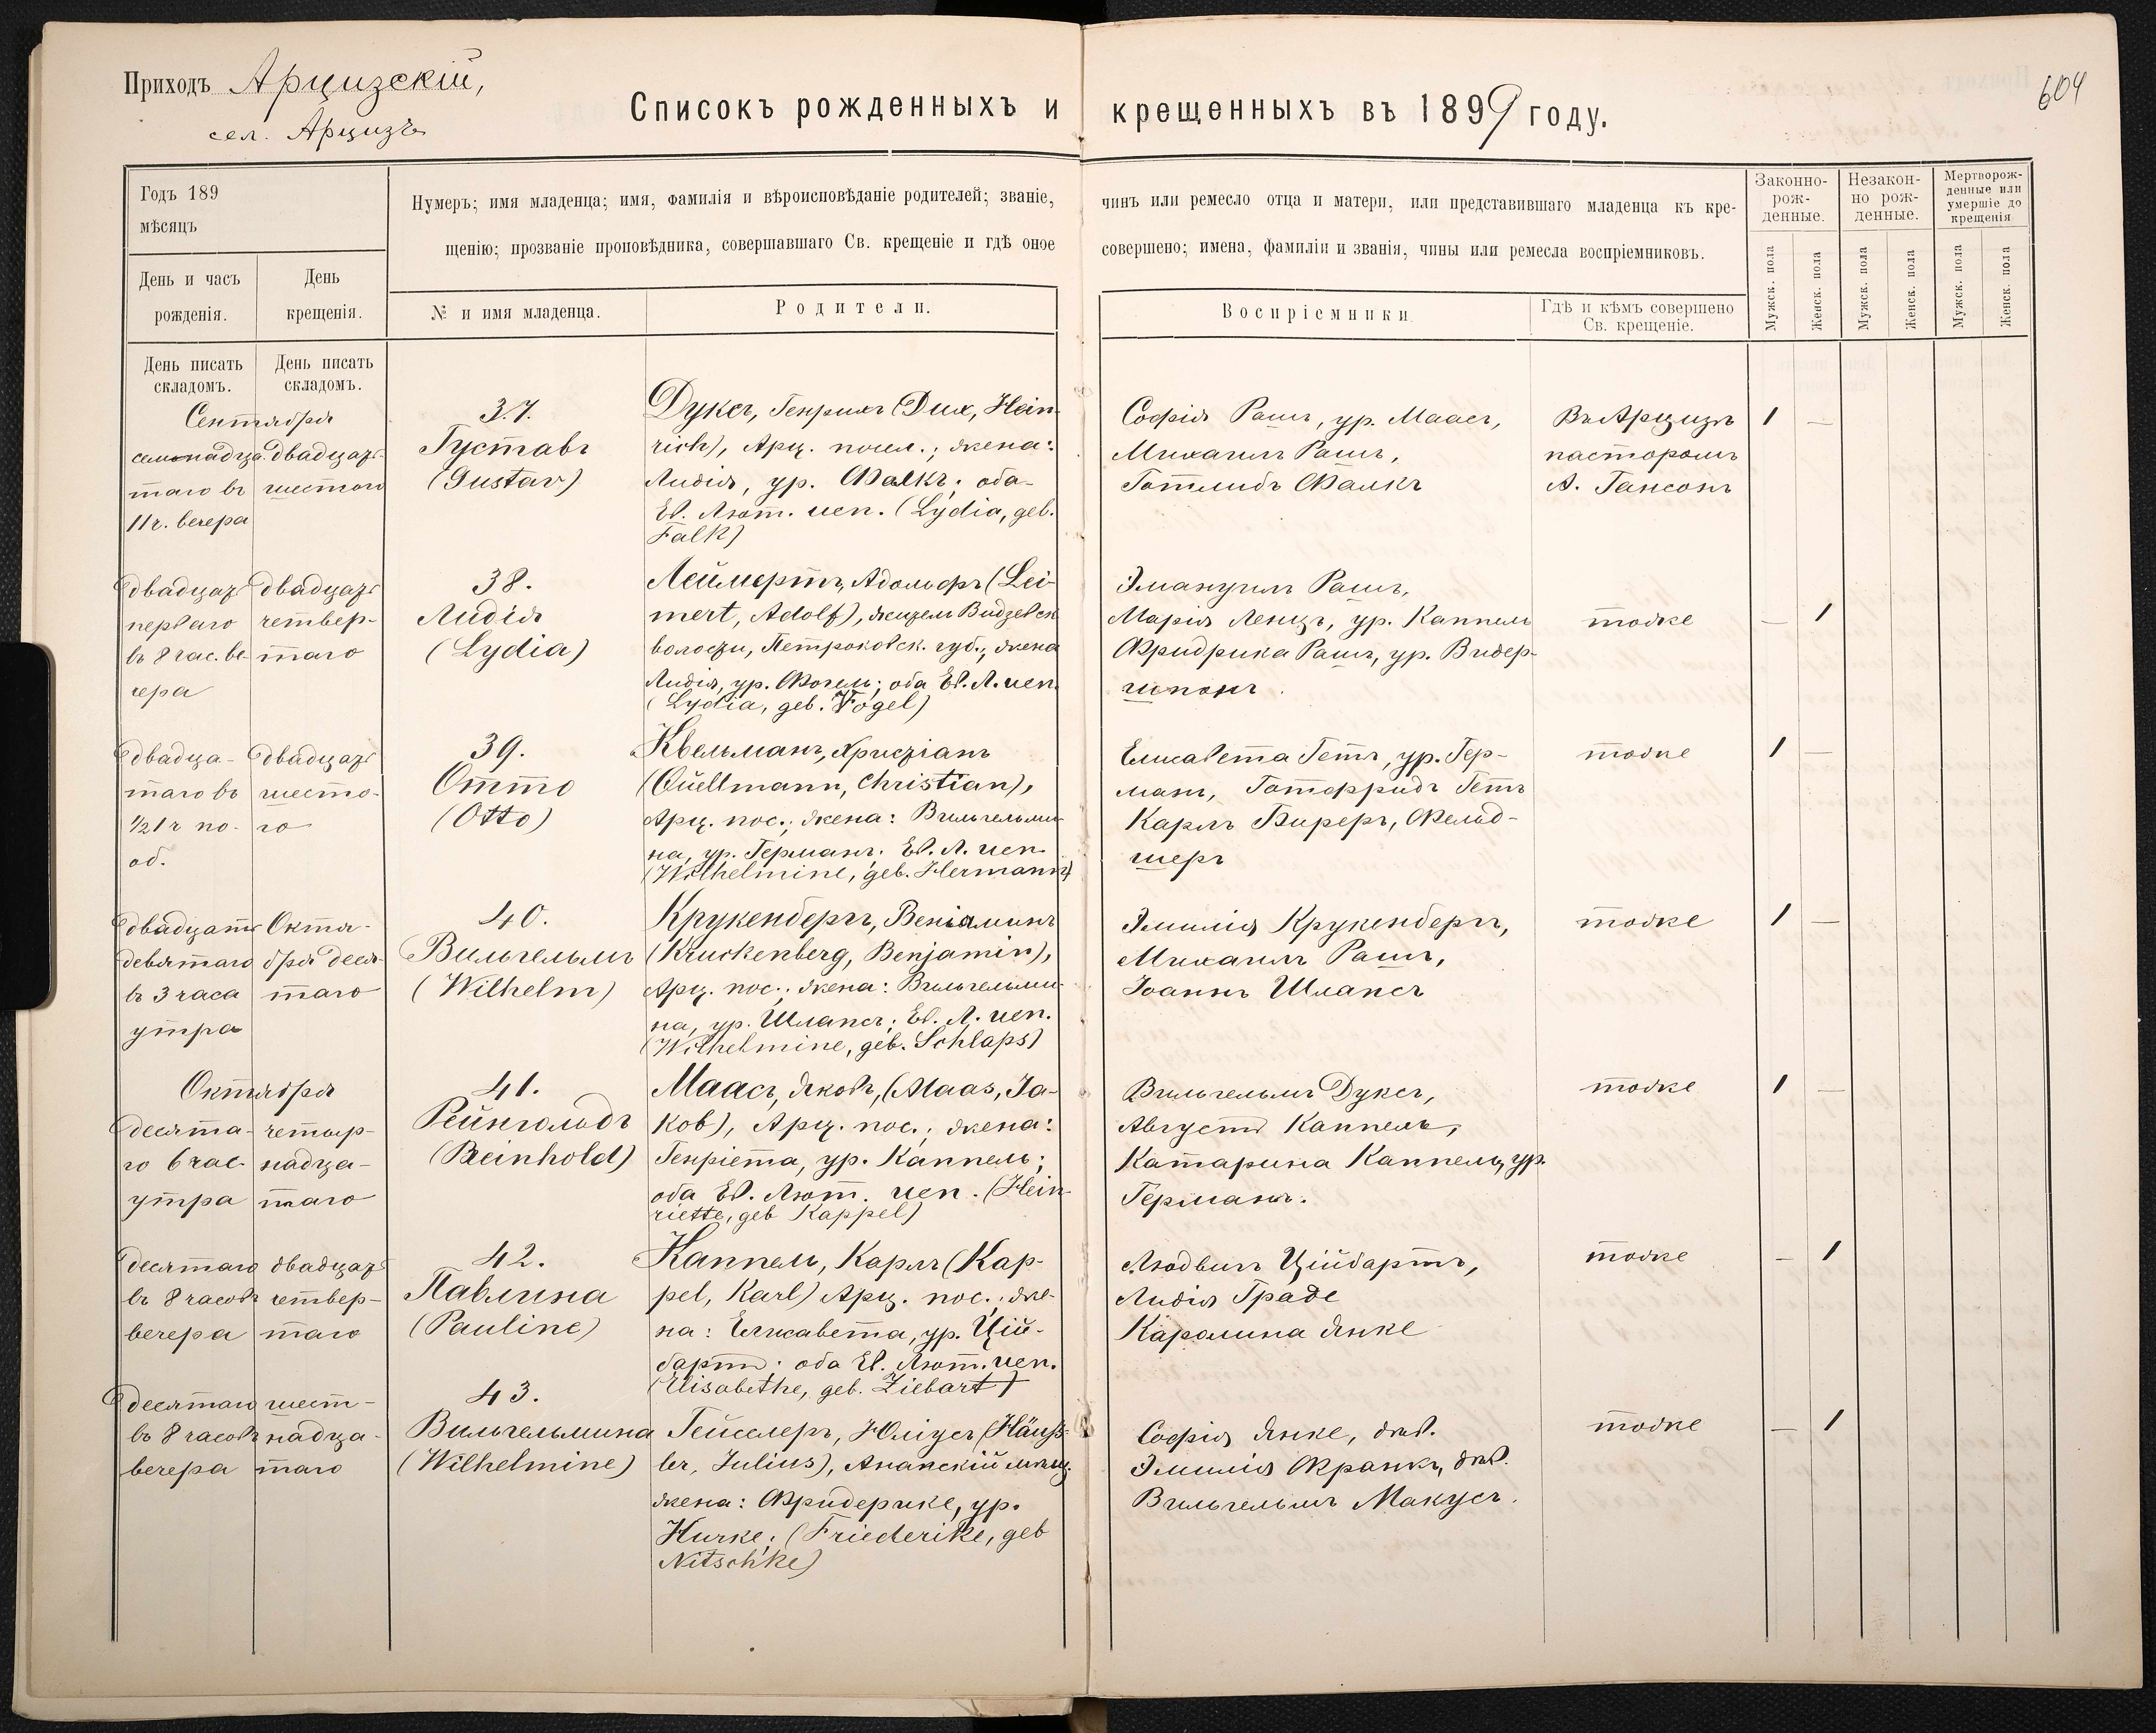 Приходъ Арцизскій,
сел. Арцизъ
604
Списокъ рожденныхъ и крещенныхъ въ 1899 году.
Годъ 189
мѣсяцъ
День и часъ рожденія.
День крещенія.
Нумеръ; имя младенца; имя, фамилія и вѣроисповѣданіе родителей; званіе, чинъ или ремесло отца и матери, или представившаго младенца къ кре-
щенію; прозваніе проповѣдника, совершавшаго Св. крещеніе и гдѣ оное совершено; имена, фамиліи и званія, чины или ремесла воспріемниковъ.
№ и имя младенца.
Родители.
Воспріемники
Гдѣ и кѣмъ совершено
Св. крещеніе.
Законно-
рож-
денные.
Незакон-
но рож-
денные.
Мертворож-
денные или
умершіе до
крещенія
Мужск. пола
Женск. пола
Мужск. пола
Женск. пола
Мужск. пола
Женск. пола
День писать
складомъ.
День писать
складомъ.
Сентября
семнадца-
таго въ
11 ч. вечера
двадцать
шестого
37.
Густавъ
(Gustav)
Дуксъ, Генрихъ (Dux, Hein-
rich), Арц. посел.; жена:
Лидія, ур. Фалкъ; оба
Ев. Лют. исп. (Lydia, geb.
Falk)
Софія Рашъ, ур. Маасъ,
Михаилъ Рашъ,
Готлибъ Фалкъ
Въ Арцизѣ
пасторомъ
А. Гансонъ
1 —
двадцать
перваго
въ 8 час. ве-
чера
двадцать
четвер-
таго
38.
Лидія
(Lydia)
Леймертъ, Адольфъ (Lei-
mert, Adolf), жител. Видзевск.
волости, Петроковск. губ.; жена
Лидія, ур. Фогель; оба Ев. Л. исп.
(Lydia, geb. Vogel)
Эмануилъ Рашъ,
Марія Ленцъ, ур. Каппель
Фридрика Рашъ, ур. Видер-
шпонъ
тоже
— 1
двадца-
таго въ
½1 ч по-
об.
двадцать
шесто-
го
39.
Отто
(Otto)
Квельманъ, Христіанъ
(Quellmann, Christian),
Арц. пос.; жена: Вильгельми-
на, ур. Германъ. Ев. Л. исп.
(Wilhelmine, geb. Hermann)
Елисавета Гетъ, ур. Гер-
манъ, Готфридъ Гетъ
Карлъ Биреръ, Фельд-
шеръ
тоже
1 —
двадцать
девятаго
въ 3 часа
утра
Октя-
бря деся-
таго
40.
Вильгельмъ
(Wilhelm)
Крукенбергъ, Веніаминъ
(Kruckenberg, Benjamin),
Арц. пос.; жена: Вильгельми-
на, ур. Шлапсъ; Ев. Л. исп.
(Wilhelmine, geb. Schlaps)
Эмилія Крукенбергъ,
Михаилъ Рашъ,
Іоаннъ Шлапсъ
тоже
1 —
Октября
десята-
го 6 час.
утра
четыр-
надца-
таго
41.
Рейнгольдъ
(Reinhold)
Маасъ, Яковъ, (Maas, Ja-
kob), Арц. пос.; жена:
Генріета, ур. Каппель;
оба Ев. Лют. исп. (Hein-
riette, geb Kappel)
Вильгельмъ Дуксъ,
Августъ Каппель,
Катарина Каппель, ур.
Германъ.
тоже
1 —
десятаго
въ 8 часовъ
вечера
двадцать
четвер-
таго
42.
Павлина
(Pauline)
Каппель, Карлъ (Kap-
pel, Karl) Арц. пос.; же-
на: Елисавета, ур. Ций-
бартъ: оба Ев. Лют. исп.
(Elisabethe, geb. Ziebart)
Людвигъ Ційбартъ,
Лидія Граде
Каролина Янке
тоже
— 1
десятаго
въ 8 часовъ
вечера
шест-
надца-
таго
43.
Вильгельмина
(Wilhelmine)
Гейселеръ, Юліусъ (Häuß-
ler, Julius), Анапскій мѣщ.
жена: Фридерике, ур.
Ничке; (Friederike, geb
Nitschke)
Софія Янке, дѣв.
Эмилія Франкъ, дѣв.
Вильгельмъ Макусъ.
тоже
— 1